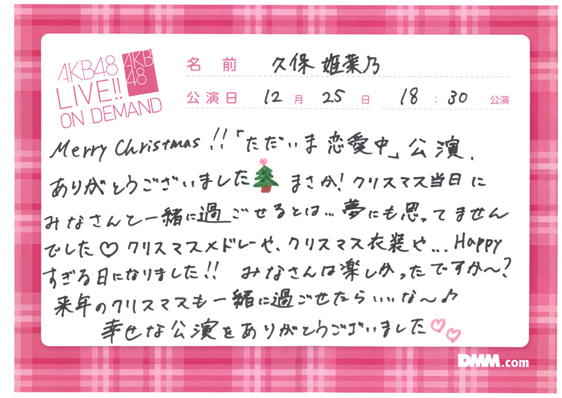 AKB48
LIVE!!
ON DEMAND
AKB
48
名前 久保 姫菜乃
公演日 12月 25日 18:30 公演
Merry Christmas!!「ただいま 恋愛中」公演、
ありがとうございました まさか！クリスマス当日に
みなさんと一緒に過ごせるとは…夢にも思ってません
でした♡ クリスマスメドレーや、クリスマス衣装や… Happy
すぎる日になりました!! みなさんは楽しかったですか〜?
来年のクリスマスも一緒に過ごせたらいいな〜♪
幸せな公演をありがとうございました♡♡
DMM.com